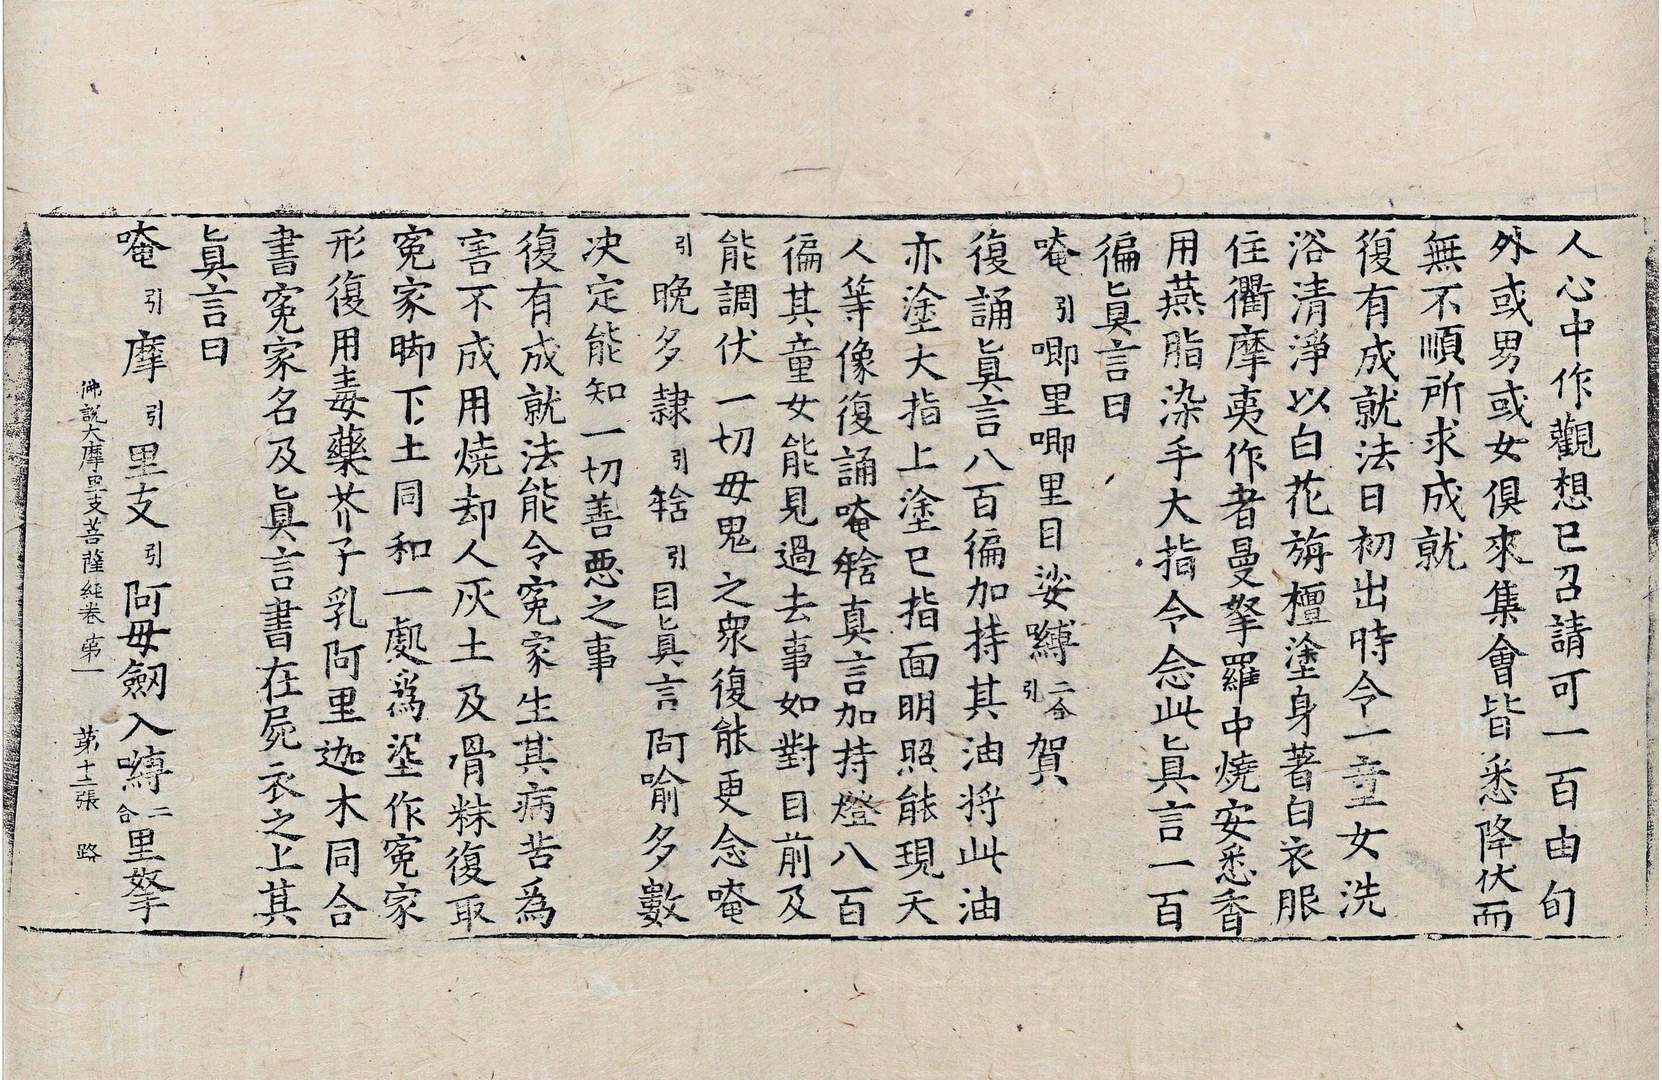 人心中作觀想已召請可一百由旬
外或男或女俱來集會皆悉降伏而
無不順所求成就
復有成就法日初出時令一童女洗
浴清淨以白花旃檀塗身著白衣服
住衢摩夷作者曼拏羅中燒安悉香
用燕脂染手大指令念此真言一百
徧真言曰
唵引唧里唧里目娑嚩二合引賀
復誦真言八百徧加持其油將此油
亦塗大指上塗已指面明照能現天
人等像復誦唵㗶真言加持燈八百
徧其童女能見過去事如對目前及
能調伏一切毋鬼之衆復能更念唵
引晚多隷引㗶引目真言阿喻多數
決定能知一切善惡之事
復有成就法能令寃家生其病苦為
害不成用燒却人灰土及骨粖復取
寃家脚下土同和一處為埿作寃家
形復用毒藥芥子乳阿里迦木同合
書寃家名及真言書在屍衣之上其
真言曰
唵引摩引里支引阿毋劒入嚩二合里拏
佛說大摩里支菩薩經卷第一 第十二張 路